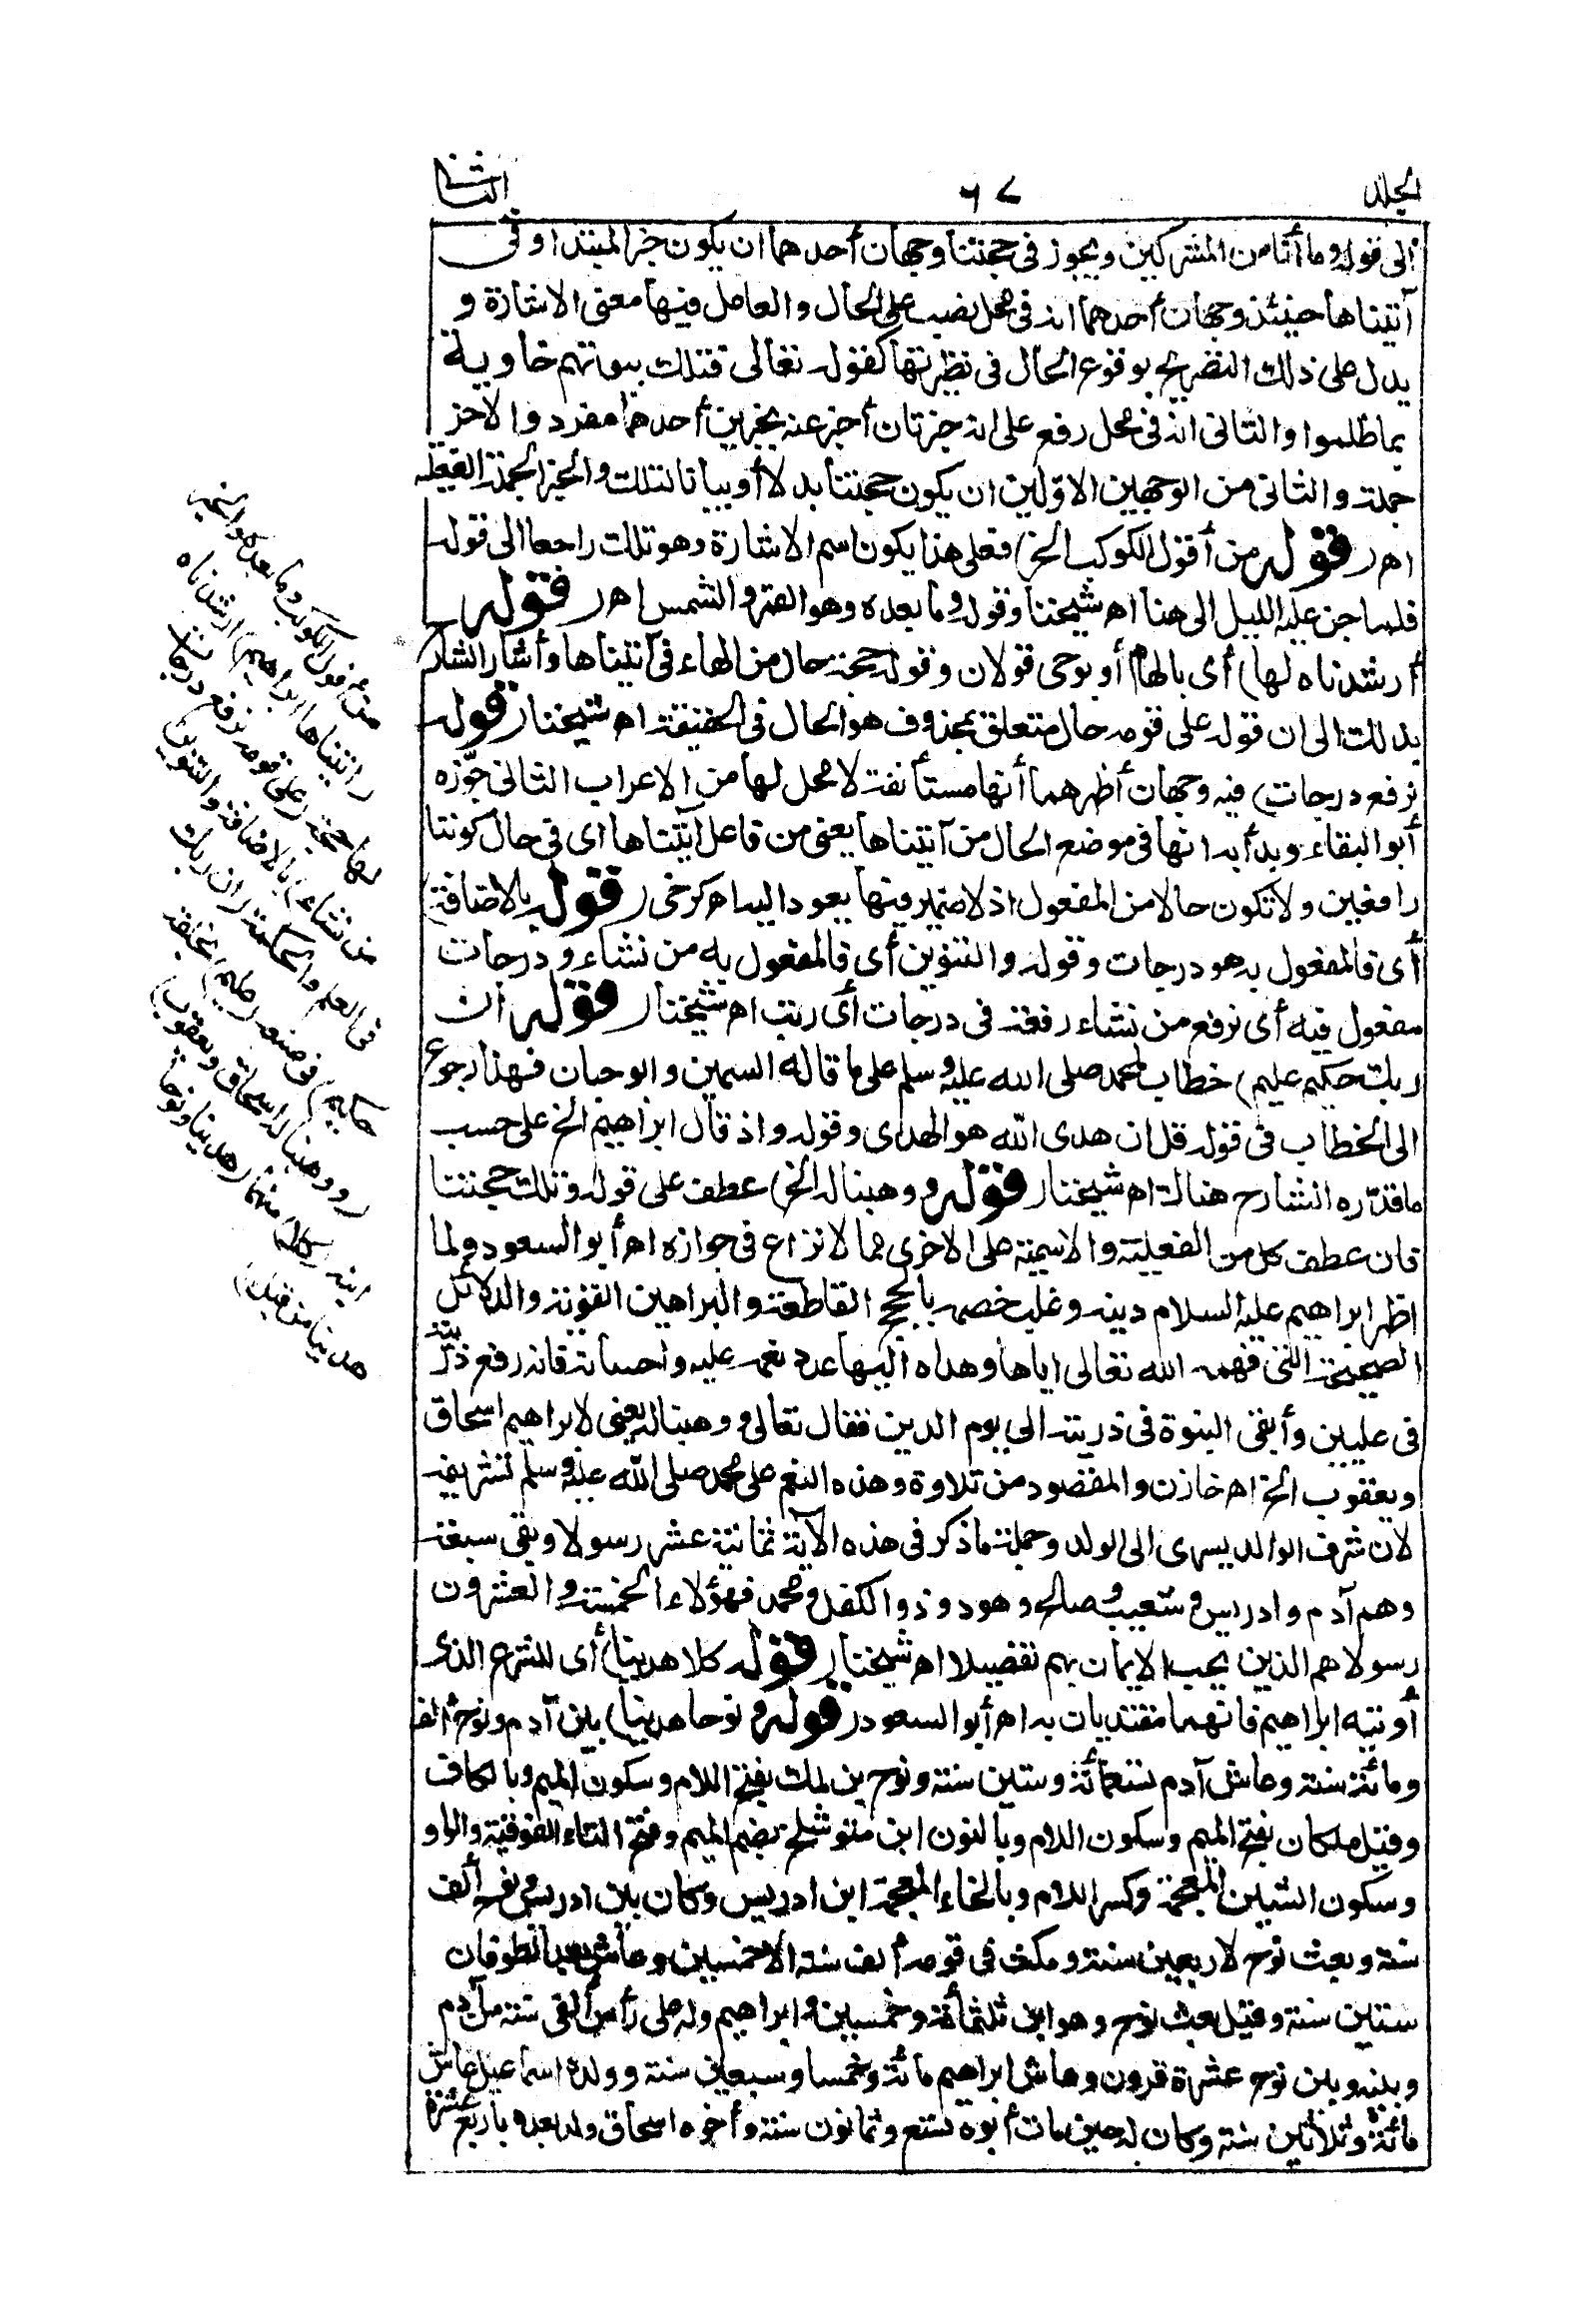 الجلد ٦٧ الثانى
الى قوله وما أنا من المشركين ويجوز فى حجتنا وجهان أحدهما ان يكون خبر المبتدا وفى
آتيناها حينئذ وجهان أحدهما انه فى محل نصب على الحال والعامل فيها معنى الاشارة و
يدل على ذلك التصريح بوقوع الحال فى نظيرتها كقوله تعالى فتلك بيوتهم خاوية
بما ظلموا والثانى انه فى محل رفع على انه خبر ثان أخبر عنه بخبرين أحدهما مفرد والاخر
جملة والثانى من الوجهين الاولين ان يكون حجتنا بدلا أو بيانا لتلك والخبر الجملة الفعلية
اهـ (قوله من أفول الكوكب الخ) فعلى هذا يكون اسم الاشارة وهو تلك راجعا الى قوله
فلما جن عليه الليل الى هنا اهـ شيخنا وقوله وما بعده وهو القمر والشمس اهـ (قوله
أرشدناه لها) أى بالهام أو بوحى قولان وقوله حجة حال من الهاء فى آتيناها وأشار الشارح
بذلك الى ان قوله على قومه حال متعلق بمحذوف هو الحال فى الحقيقة اهـ شيخنا (قوله
نرفع درجات) فيه وجهان أظهرهما أنها مستأنفة لا محل لها من الاعراب الثانى جوّزه
أبو البقاء وبدأ به انها فى موضع الحال من آتيناها يعنى من فاعل آتيناها اى فى حال كوننا
رافعين ولا تكون حالا من المفعول اذ لا ضمير فيها يعود اليه اهـ كرخى (قوله بالاضافة)
أى فالمفعول به هو درجات وقوله والتنوين أى فالمفعول به من نشاء ودرجات
مفعول فيه أى نرفع من نشاء رفعة فى درجات أى رتب اهـ شيخنا (قوله ان
ربك حكيم عليم) خطاب لمحمد صلى الله عليه وسلم على ما قاله السمين وابو حيان فهذا رجوع
الى الخطاب فى قوله قل ان هدى الله هو الهدى وقوله واذ قال ابراهيم الخ على حسب
ما قدّره الشارح هناك اهـ شيخنا (قوله ووهبنا له الخ) عطف على قوله وتلك حجتنا
فان عطف كل من الفعلية والاسمية على الاخرى مما لا نزاع فى جوازه اهـ أبو السعود ولما
اظهر ابراهيم عليه السلام دينه وغلب خصمه بالحجج القاطعة والبراهين القوية والدلائل
الصحيحة التى فهمه الله تعالى اياها وهداه اليها عدد نعمه عليه واحسانه فانه رفع ذريته
فى عليين وأبقى النبوة فى ذريته الى يوم الدين فقال تعالى ووهبنا له يعنى لابراهيم اسحاق
ويعقوب الخ اهـ خازن والمقصود من تلاوة هذه النعم على محمد صلى الله عليه وسلم تشريفه
لان شرف الوالد يسرى الى الولد وجملة ما ذكر فى هذه الآية ثمانية عشر رسولا وبقى سبعة
وهم آدم وادريس وشعيب وصالح وهود وذو الكفل ومحمد فهؤلاء الخمسة والعشرون
رسولا هم الذين يجب الايمان بهم تفصيلا اهـ شيخنا (قوله كلا هدينا) أى للشرع الذى
أوتيه ابراهيم فانهما مقتديان به اهـ أبو السعود (قوله ونوحا هدينا) بين آدم ونوح ألف
ومائة سنة وعاش آدم تسعمائة وستين سنة ونوح بن لمك بفتح اللام وسكون الميم وبالكاف
وقيل ملكان بفتح الميم وسكون اللام وبالنون ابن متوشلخ بضم الميم وفتح التاء الفوقية والواو
وسكون الشين المعجمة وكسر اللام وبالخاء المعجمة ابن ادريس وكان بين ادريس ونوح ألف
سنة وبعث نوح لاربعين سنة ومكث فى قومه ألف سنة الا خمسين وعاش بعد الطوفان
ستين سنة وقيل بعث نوح وهو ابن ثلثمائة وخمسين وابراهيم ولد على رأس ألفى سنة من آدم
وبينه وبين نوح عشرة قرون وعاش ابراهيم مائة وخمسا وسبعين سنة وولده اسماعيل عاش
مائة وثلاثين سنة وكان له حين مات أبوه تسع وثمانون سنة وأخوه اسحاق ولد بعده باربع عشرة
من أفول الكوكب وما بعده والخبر
(آتيناها ابراهيم) ارشدناه
لها حجة (على قومه نرفع درجات
من نشاء) بالاضافة والتنوين
فى العلم والحكمة (ان ربك
حكيم) فى صنعه (عليم) بخلقه
(ووهبنا له اسحاق ويعقوب)
ابنه (كلا) منهما (هدينا ونوحا
هدينا من قبل)